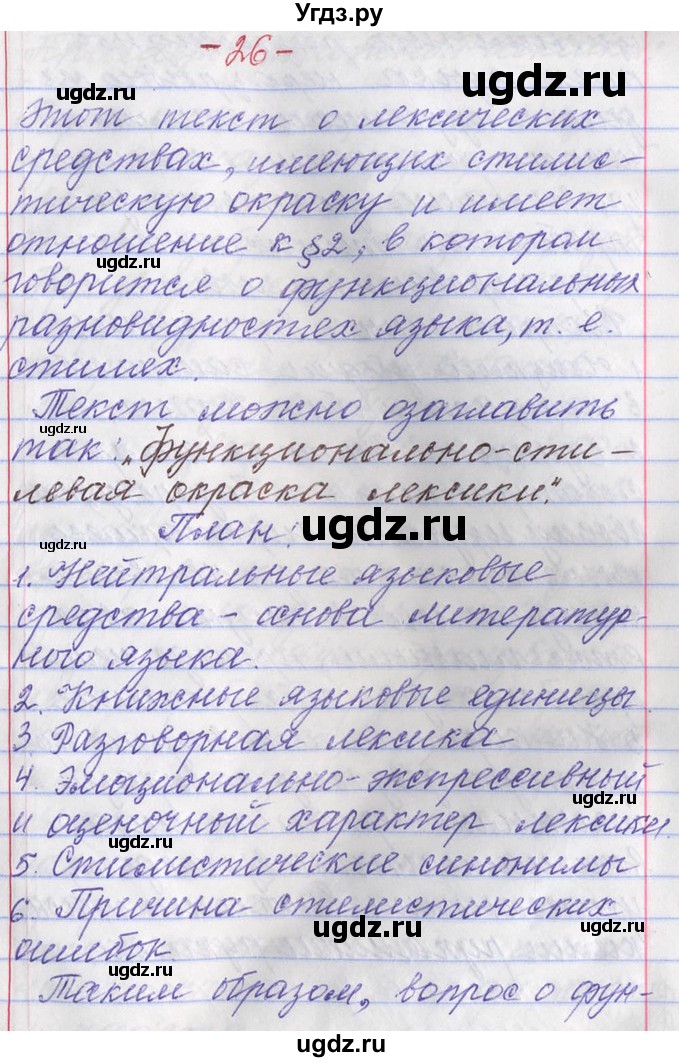 Угдз.ру
- 26 -
ugdz.ru
ugdz.ru
Этот текст о лексических
средствах, имеющих стилис-
тическую окраску и имеет
отношение к §2, в котором
ugdz.ru
ugdz.ru
говорится о функциональных
разновидностях языка, т. е.
стилях.
Текст можно озаглавить
так: „Функционально-сти-
ugdz.ru
левая окраска лексики".
План:
ugdz.ru
ugdz.ru
1. Нейтральные языковые
средства - основа литератур-
ного языка.
ugdz.ru
2. Книжные языковые единицы.
3. Разговорная лексика
4. Эмоционально-экспрессивный
ugdz.ru
и оценочный характер лексики.
ugdz.ru
5. Стилистические синонимы
6. Причина стилистических
ugdz.ru
ugdz.ru
ошибок.
ugdz.ru
Таким образом, вопрос о фун-
ugdz.ru